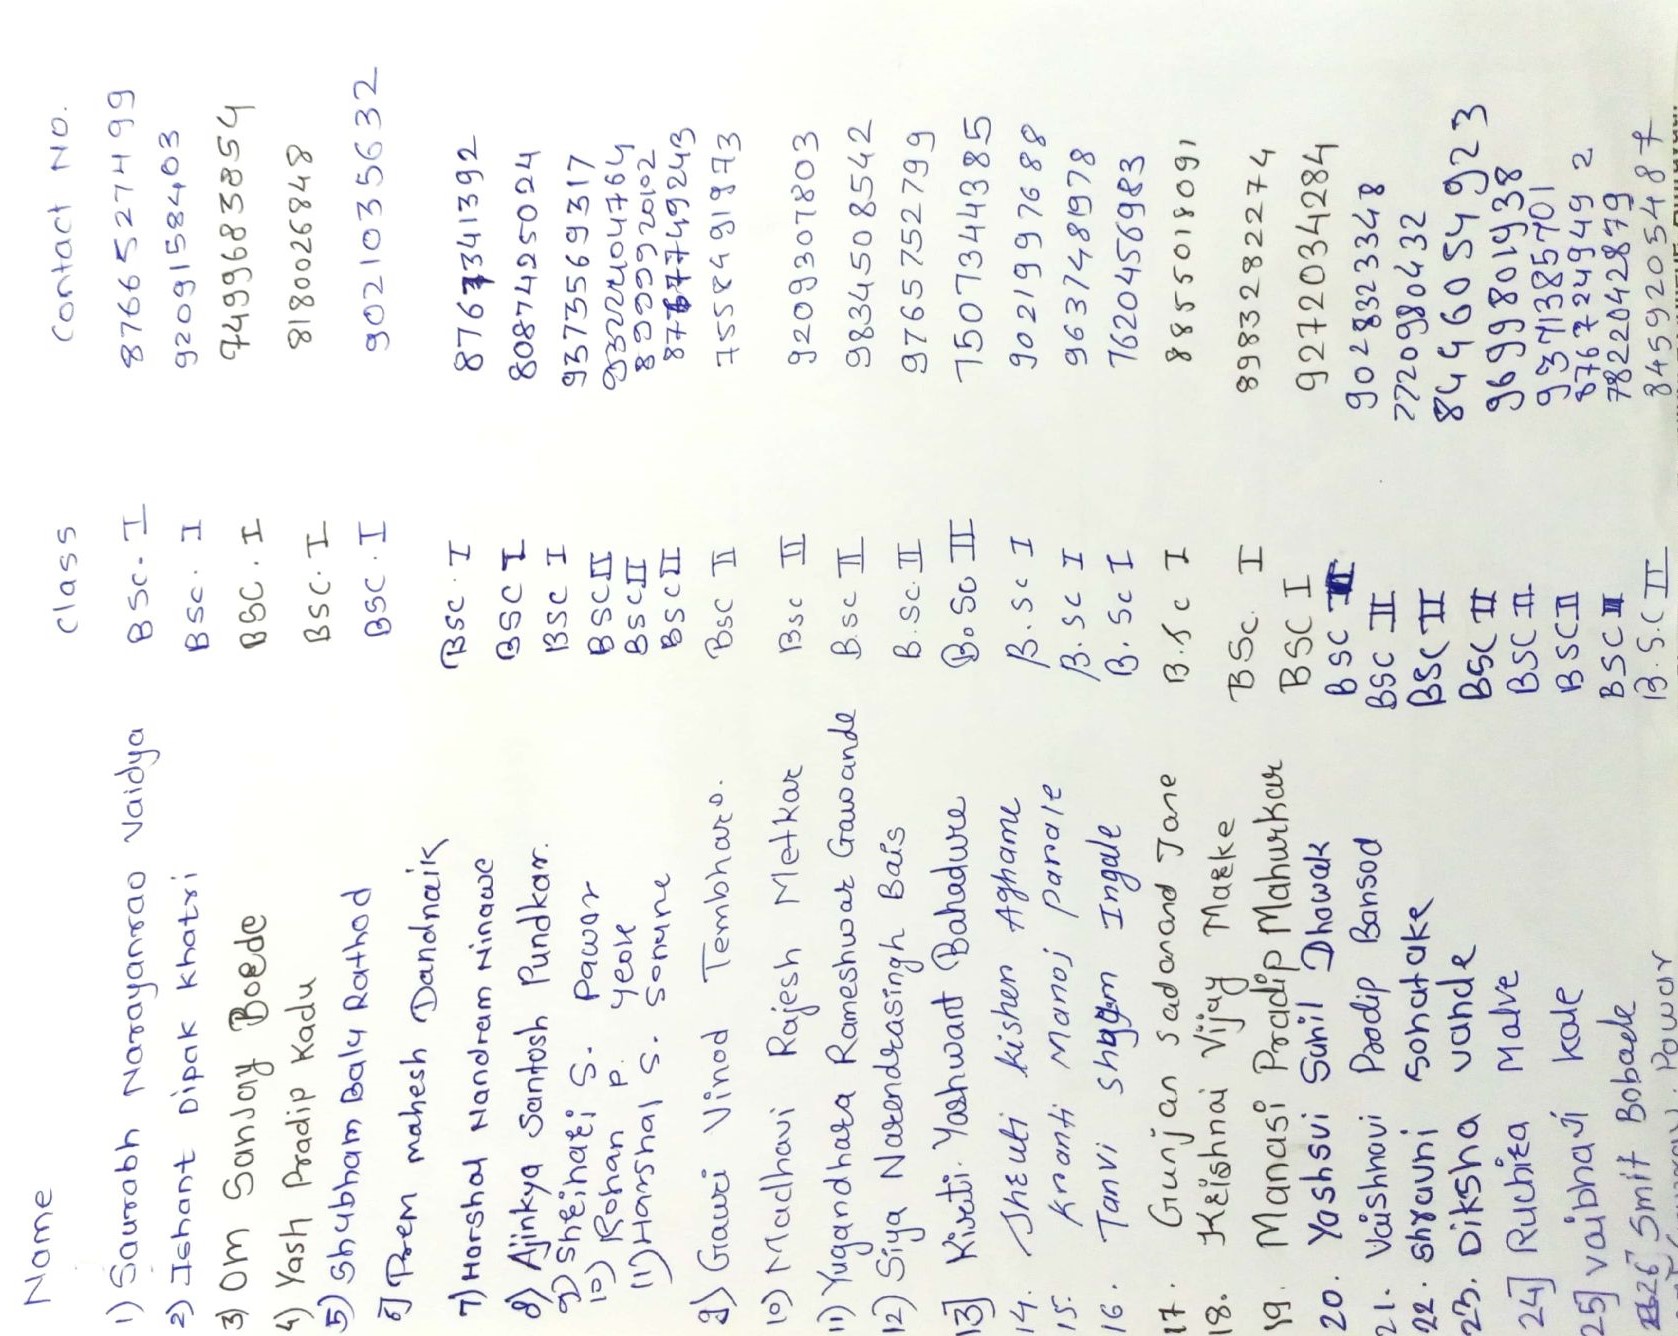 Name Class Contact No.
1) Saurabh Narayanrao Vaidya BSc. I 8766527499
2) Ishant Dipak Khatri BSc. I 9209158403
3) Om Sanjay Boede BSC. I 7499683854
4) Yash Pradip Kadu BSC. I 8180026848
5) Shubham Balu Rathod BSC. I 9021035632
6] Prem mahesh Dandnaik
7) Harshal Nandram Ninawe BSC. I 8767341392
8) Ajinkya Santosh Pundkar. BSC I 8087425024
9) Sheihari S. Pawar BSC I 93735569317
10) Rohan P. Yeole BSC II
11) Harshal S. Sonune BSC II 8999920102
BSC II 8767749243
9) Gauri Vinod Tembhare. BSC II 7558491973
10) Madhavi Rajesh Metkar BSC II 9209307803
11) Yugandhara Rameshwar Gawande B.SC II 9834508542
12) Siya Narendrasingh Bais B.SC. II 9765752799
13] Kirti. Yashwant Bahadure B.Sc II 7507344385
14. Shruti kishen Aghame B.Sc I 9021997688
15. Kranti Manoj Parale B.SC I 9637481978
16. Tanvi Shyam Ingale B. Sc I 7620456983
17. Gunjan Sadanand Jane B.Sc I 8855018091
18. Keishnai Vijay Maske BSC. I 8983282274
19. Manasi Pradip Mahurkar BSC I 9272034284
20. Yashsvi Sunil Dhowak BSC II 9028323348
21. Vaishnavi Pradip Bansod BSC II 7720980432
22. Shravni Sonatake BSC II 8446054923
23. Diksha vande BSC II 9699801938
24] Ruchita Malve BSC II 9371385701
25] vaibhavi kale BSC II 8767249492
26] Smit Bobade BSC II 7822042879
Powar B.S.C II 8459205487